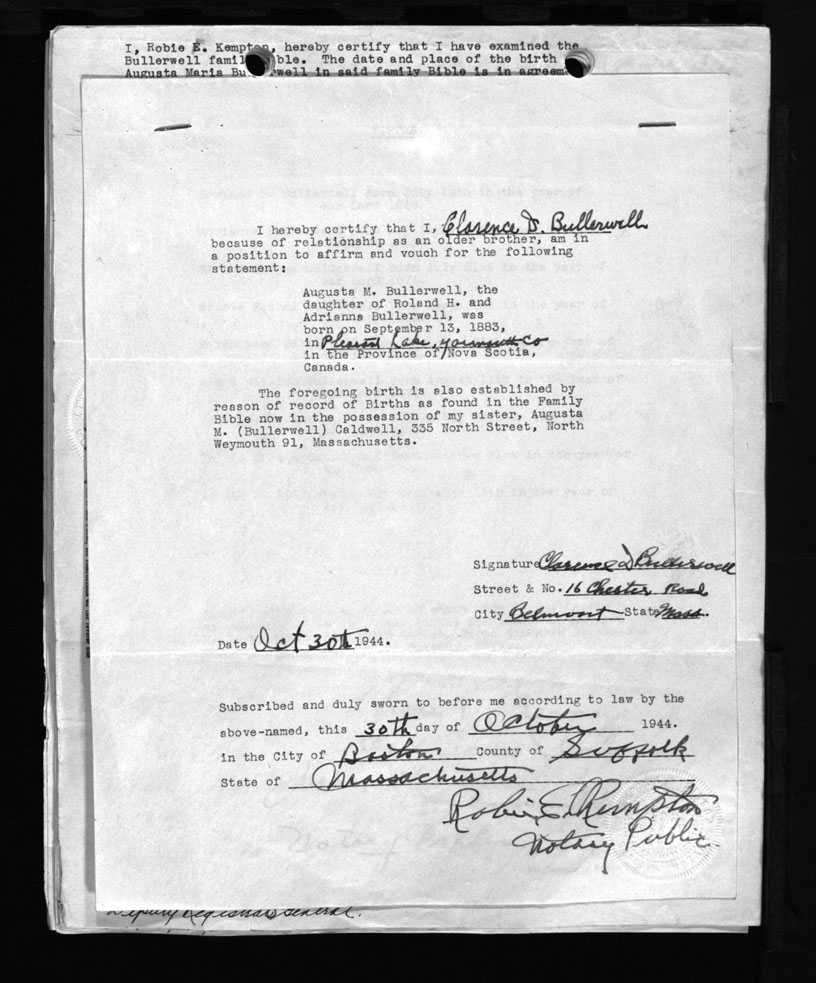 I, Robie E. Kempton, hereby certify that I have examined the
Bullerwell family Bible. The date and place of the birth
Augusta Maria Bullerwell in said family Bible is in agreem
I hereby certify that I, Clarence D. Bullerwell
because of relationship as an older brother, am in
a position to affirm and vouch for the following
statement:
Augusta M. Bullerwell, the
daughter of Roland H. and
Adrianna Bullerwell, was
born on September 13, 1883,
in Pleasant Lake, Yarmouth Co
in the Province of Nova Scotia,
Canada.
The foregoing birth is also established by
reason of record of Births as found in the Family
Bible now in the possession of my sister, Augusta
M. (Bullerwell) Caldwell, 335 North Street, North
Weymouth 91, Massachusetts.
Signature Clarence D Bullerwell
Street & No. 16 Chester Road
City Belmont State Mass.
Date Oct 30th 1944.
Subscribed and duly sworn to before me according to law by the
above-named, this 30th day of October 1944.
in the City of Boston County of Suffolk
State of Massachusetts
Robie E. Kempton
Notary Public.
Deputy Registrar General.